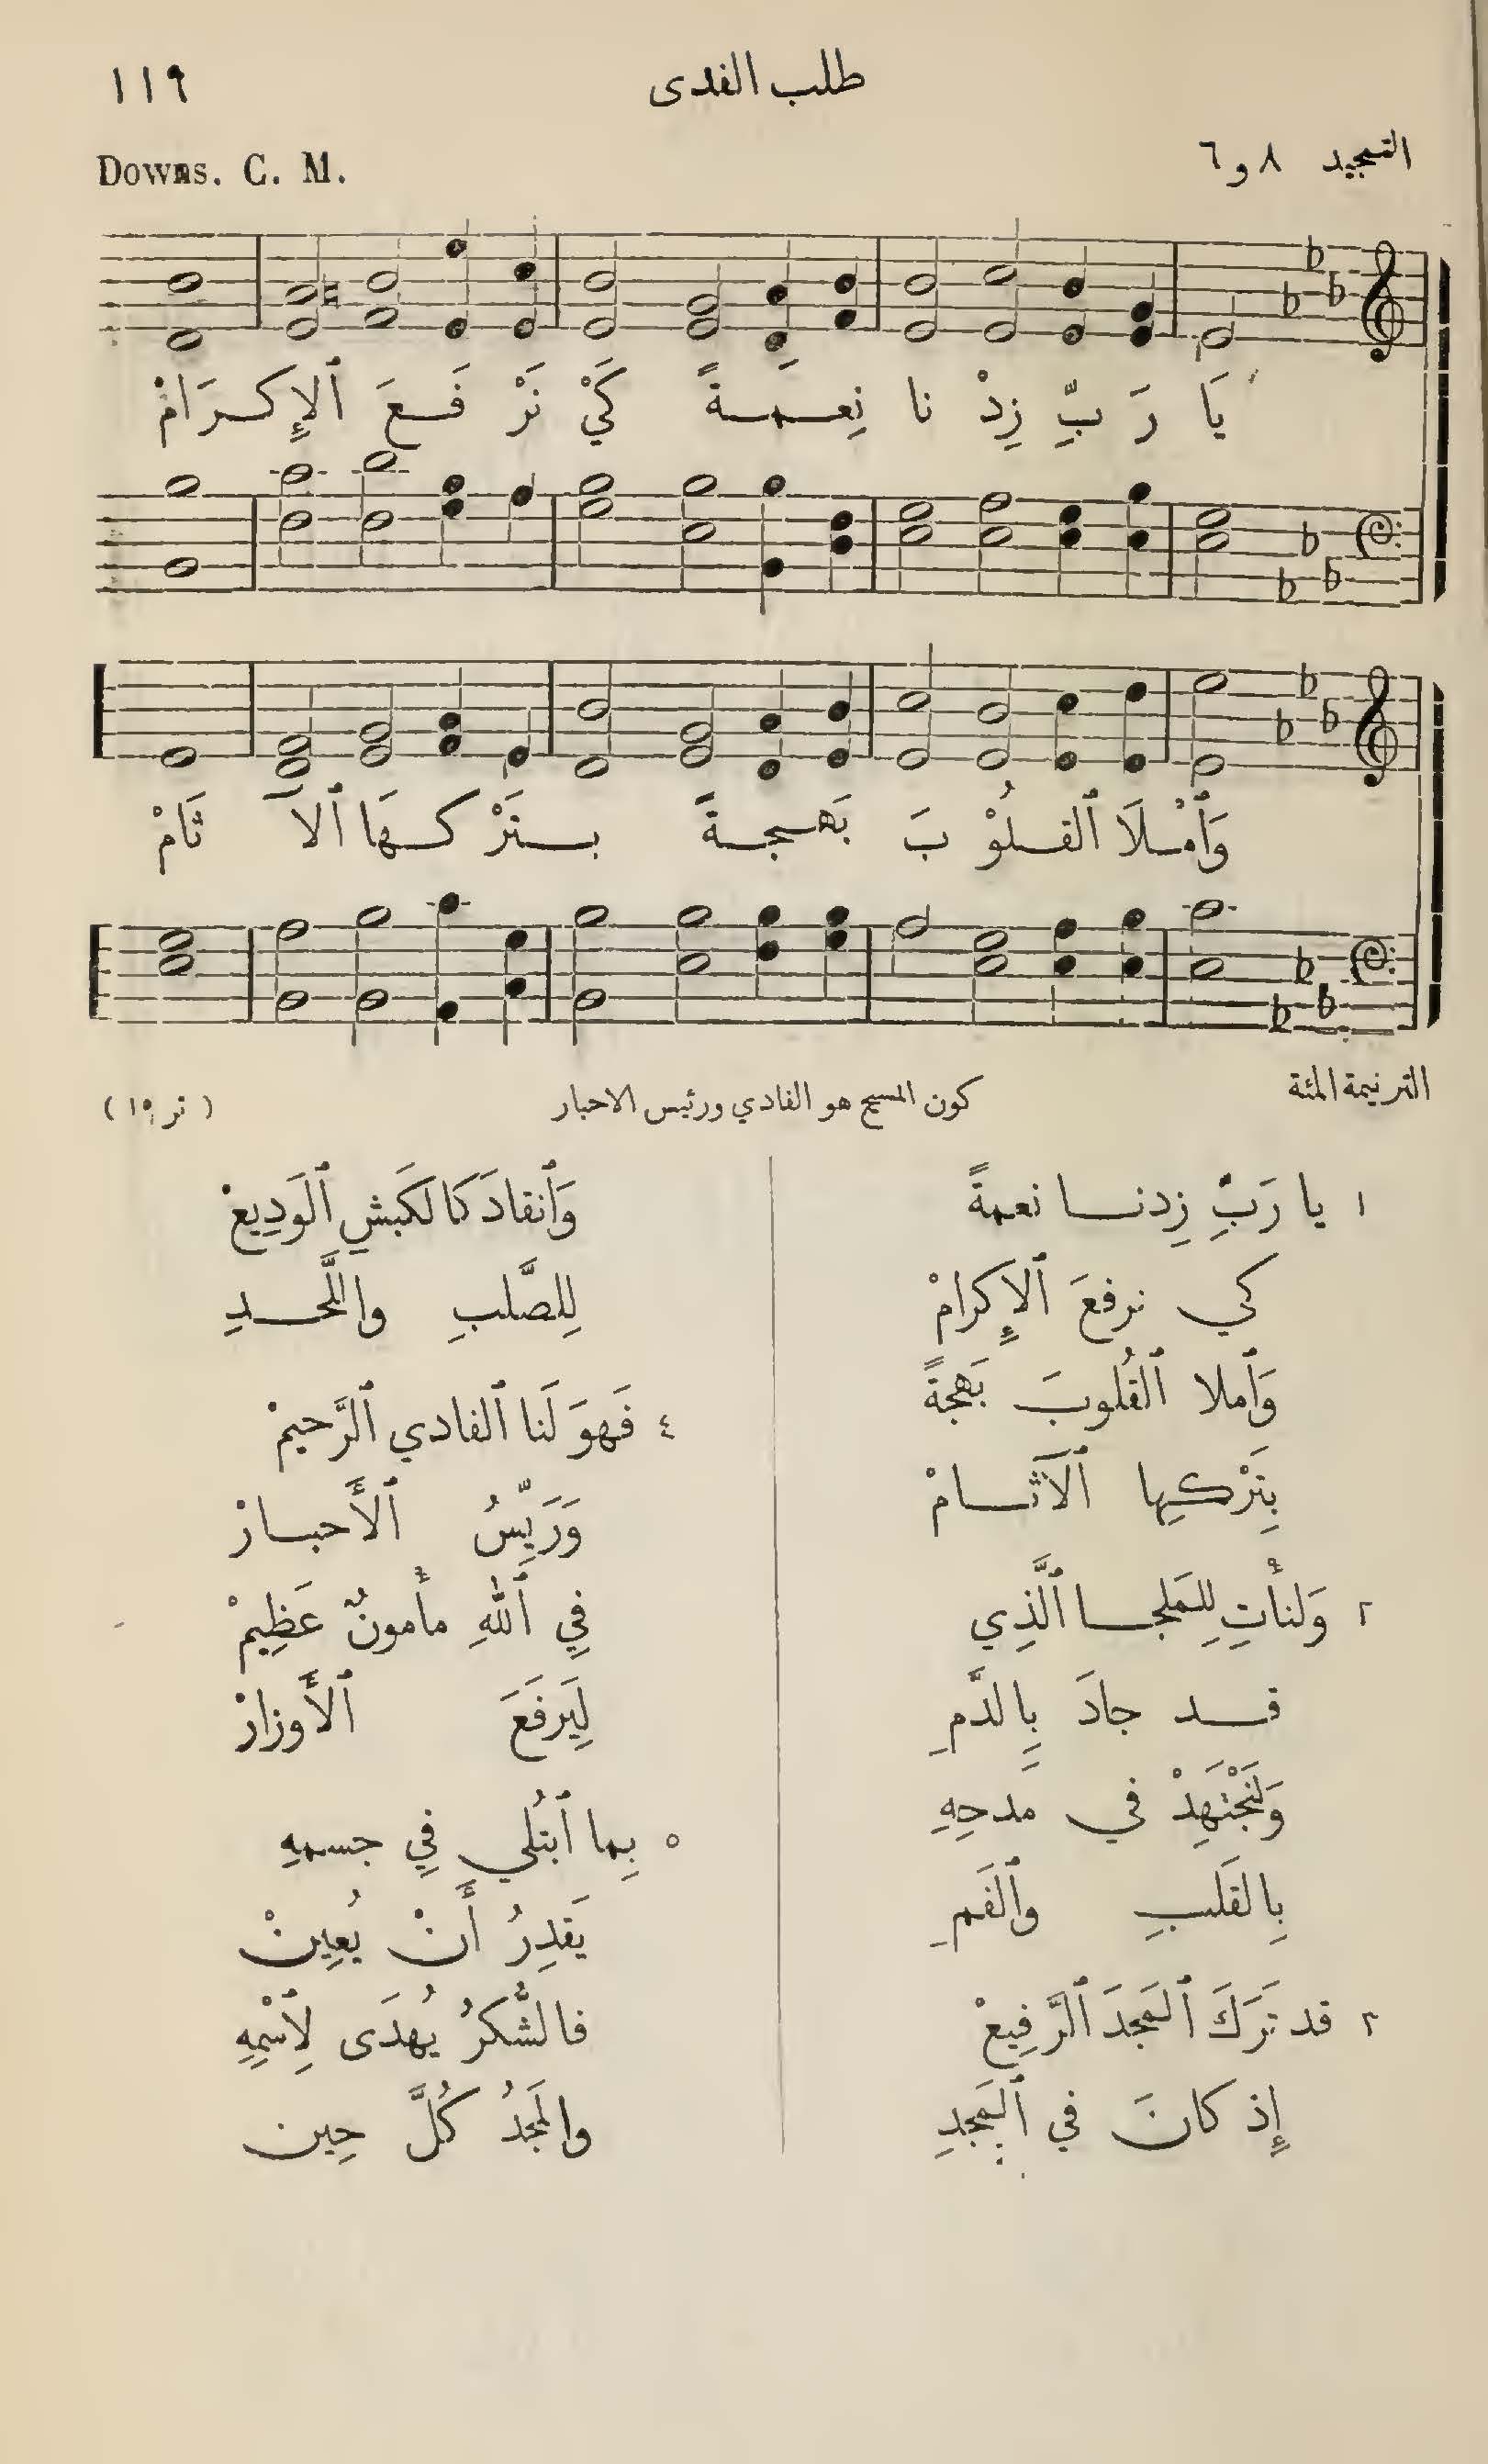 طلب الفدى
١١٩
التمجيد ٨ و٦
Downs. C. M.
يَا رَ بِّ زِدْ نا نِعـمـةً كَيْ نَرْ فَـعَ ٱلإِكـرَامْ
وَٱمْـلَا ٱلقـلُوْ بَ بَهـجـةً بـتَرْ كـهَا ٱلآ ثَامْ
الترنيمة المئة
كون المسيح هو الفادي ورئيس الاحبار
١ يا رَبِّ زِدنـا نعمةً
كي نرفعَ ٱلإِكرامْ
وَٱملا ٱلقُلوبَ بَهجةً
بِتَرْكِها ٱلآثـامْ
٢ وَلنأْتِ لِلمَلجـا ٱلَّذِي
قـد جادَ بِالدَّمِ
وَلنَجْتَهِدْ في مَدحِهِ
بِالقَلبِ وٱلفَمِ
٣ قد تَرَكَ ٱلمَجدَ ٱلرَّفِيعْ
إِذ كانَ في ٱلمَجدِ
وَٱنقادَ كالكَبشِ ٱلوَدِيعْ
لِلصَّلبِ واللَّحـدِ
٤ فَهوَ لَنا ٱلفادي ٱلرَّحيمْ
وَرَيِّسُ ٱلأَحبـارْ
فِي ٱللهِ مأْمونٌ عَظِيمْ
لِيَرفَعَ ٱلأَوزارْ
٥ بِما ٱبتُلي فِي جسمهِ
يَقدِرُ أَنْ يُعِينْ
فالشُّكرُ يُهدَى لِٱسْمِهِ
والمَجدُ كُلَّ حِين